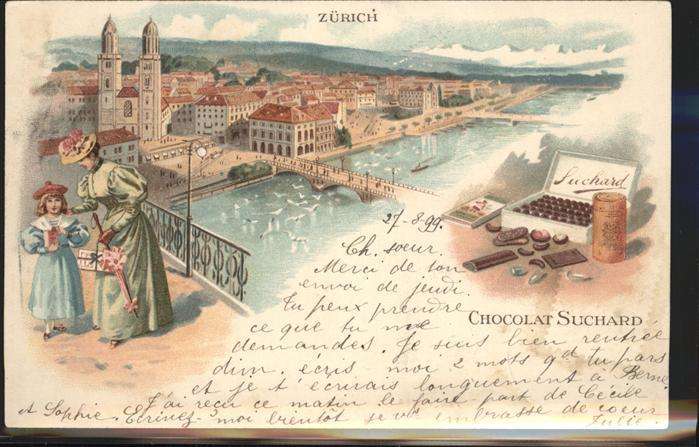 ZÜRICH
Suchard
27-8-99.
Ch. sœur.
Merci de ton
envoi de jeudi.
Tu peux prendre
ce que tu me
demandes. Je suis bien rentrée
dim. écris moi 2 mots qd tu pars
et je t'écrirais longuement à Berne
J'ai reçu ce matin le faire part de Cécile
et Sophie. Ecrivez-moi bientôt je vs embrasse de coeur
Julie.
CHOCOLAT SUCHARD